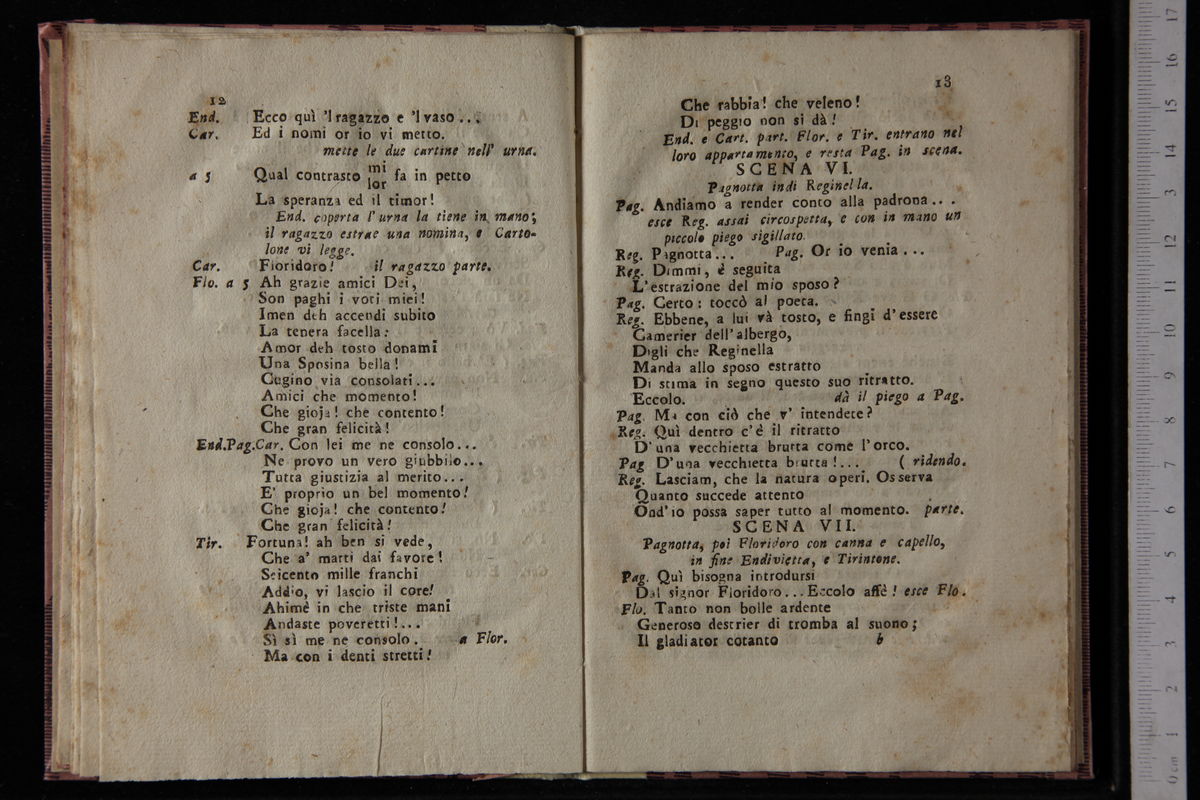 12
End. Ecco quì 'l ragazzo e 'l vaso...
Car. Ed i nomi or io vi metto.
mette le due cartine nell' urna.
a 5 Qual contrasto mi fa in petto
lor
La speranza ed il timor!
End. coperta l' urna la tiene in mano;
il ragazzo estrae una nomina, e Carto-
lone vi legge.
Car. Floridoro! il ragazzo parte.
Flo. a 5 Ah grazie amici Dei,
Son paghi i voti miei!
Imen deh accendi subito
La tenera facella:
Amor deh tosto donami
Una Sposina bella!
Cugino via consolati...
Amici che momento!
Che gioja! che contento!
Che gran felicità!
End.Pag.Car. Con lei me ne consolo...
Ne provo un vero giubbilo...
Tutta giustizia al merito...
E' proprio un bel momento!
Che gioja! che contento!
Che gran felicità!
Tir. Fortuna! ah ben si vede,
Che a' matti dai favore!
Seicento mille franchi
Addio, vi lascio il core!
Ahimè in che triste mani
Andaste poveretti!...
Sì sì me ne consolo. a Flor.
Ma con i denti stretti!
13
Che rabbia! che veleno!
Di peggio non si dà!
End. e Cart. part. Flor. e Tir. entrano nel
loro appartamento, e resta Pag. in scena.
SCENA VI.
Pagnotta indi Reginella.
Pag. Andiamo a render conto alla padrona...
esce Reg. assai circospetta, e con in mano un
piccolo piego sigillato.
Reg. Pagnotta... Pag. Or io venia...
Reg. Dimmi, è seguita
L'estrazione del mio sposo?
Pag. Certo: toccò al poeta.
Reg. Ebbene, a lui và tosto, e fingi d'essere
Camerier dell'albergo,
Digli che Reginella
Manda allo sposo estratto
Di stima in segno questo suo ritratto.
Eccolo. dà il piego a Pag.
Pag. Ma con ciò che v' intendete?
Reg. Quì dentro c'è il ritratto
D'una vecchietta brutta come l'orco.
Pag D'una vecchietta brutta!... ( ridendo.
Reg. Lasciam, che la natura operi. Osserva
Quanto succede attento
Ond'io possa saper tutto al momento. parte.
SCENA VII.
Pagnotta, poi Floridoro con canna e capello,
in fine Endivietta, e Tirintone.
Pag. Quì bisogna introdursi
Dal signor Floridoro...Eccolo affè! esce Flo.
Flo. Tanto non bolle ardente
Generoso destrier di tromba al suono;
Il gladiator cotanto b
0 cm 1 2 3 4 5 6 7 8 9 10 11 12 13 14 15 16 17